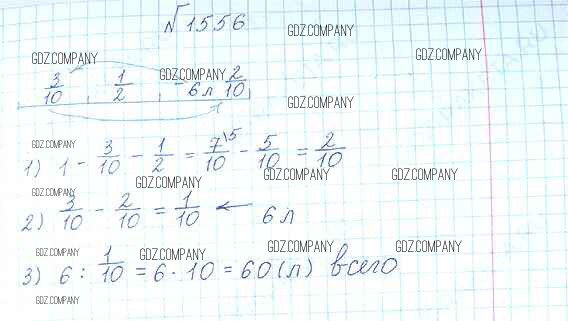 №1556
GDZ.COMPANY
GDZ.COMPANY
GDZ.COMPANY
3/10 1/2 6л 2/10
GDZ.COMPANY
GDZ.COMPANY
GDZ.COMPANY
1) 1 - 3/10 - 1/2 = 7/10 \5 - 5/10 = 2/10
GDZ.COMPANY GDZ.COMPANY GDZ.COMPANY GDZ.COMPANY
GDZ.COMPANY
2) 3/10 - 2/10 = 1/10 ← 6л
GDZ.COMPANY
GDZ.COMPANY GDZ.COMPANY GDZ.COMPANY GDZ.COMPANY
3) 6 : 1/10 = 6 · 10 = 60 (л) всего
GDZ.COMPANY
GDZ.COMPANY